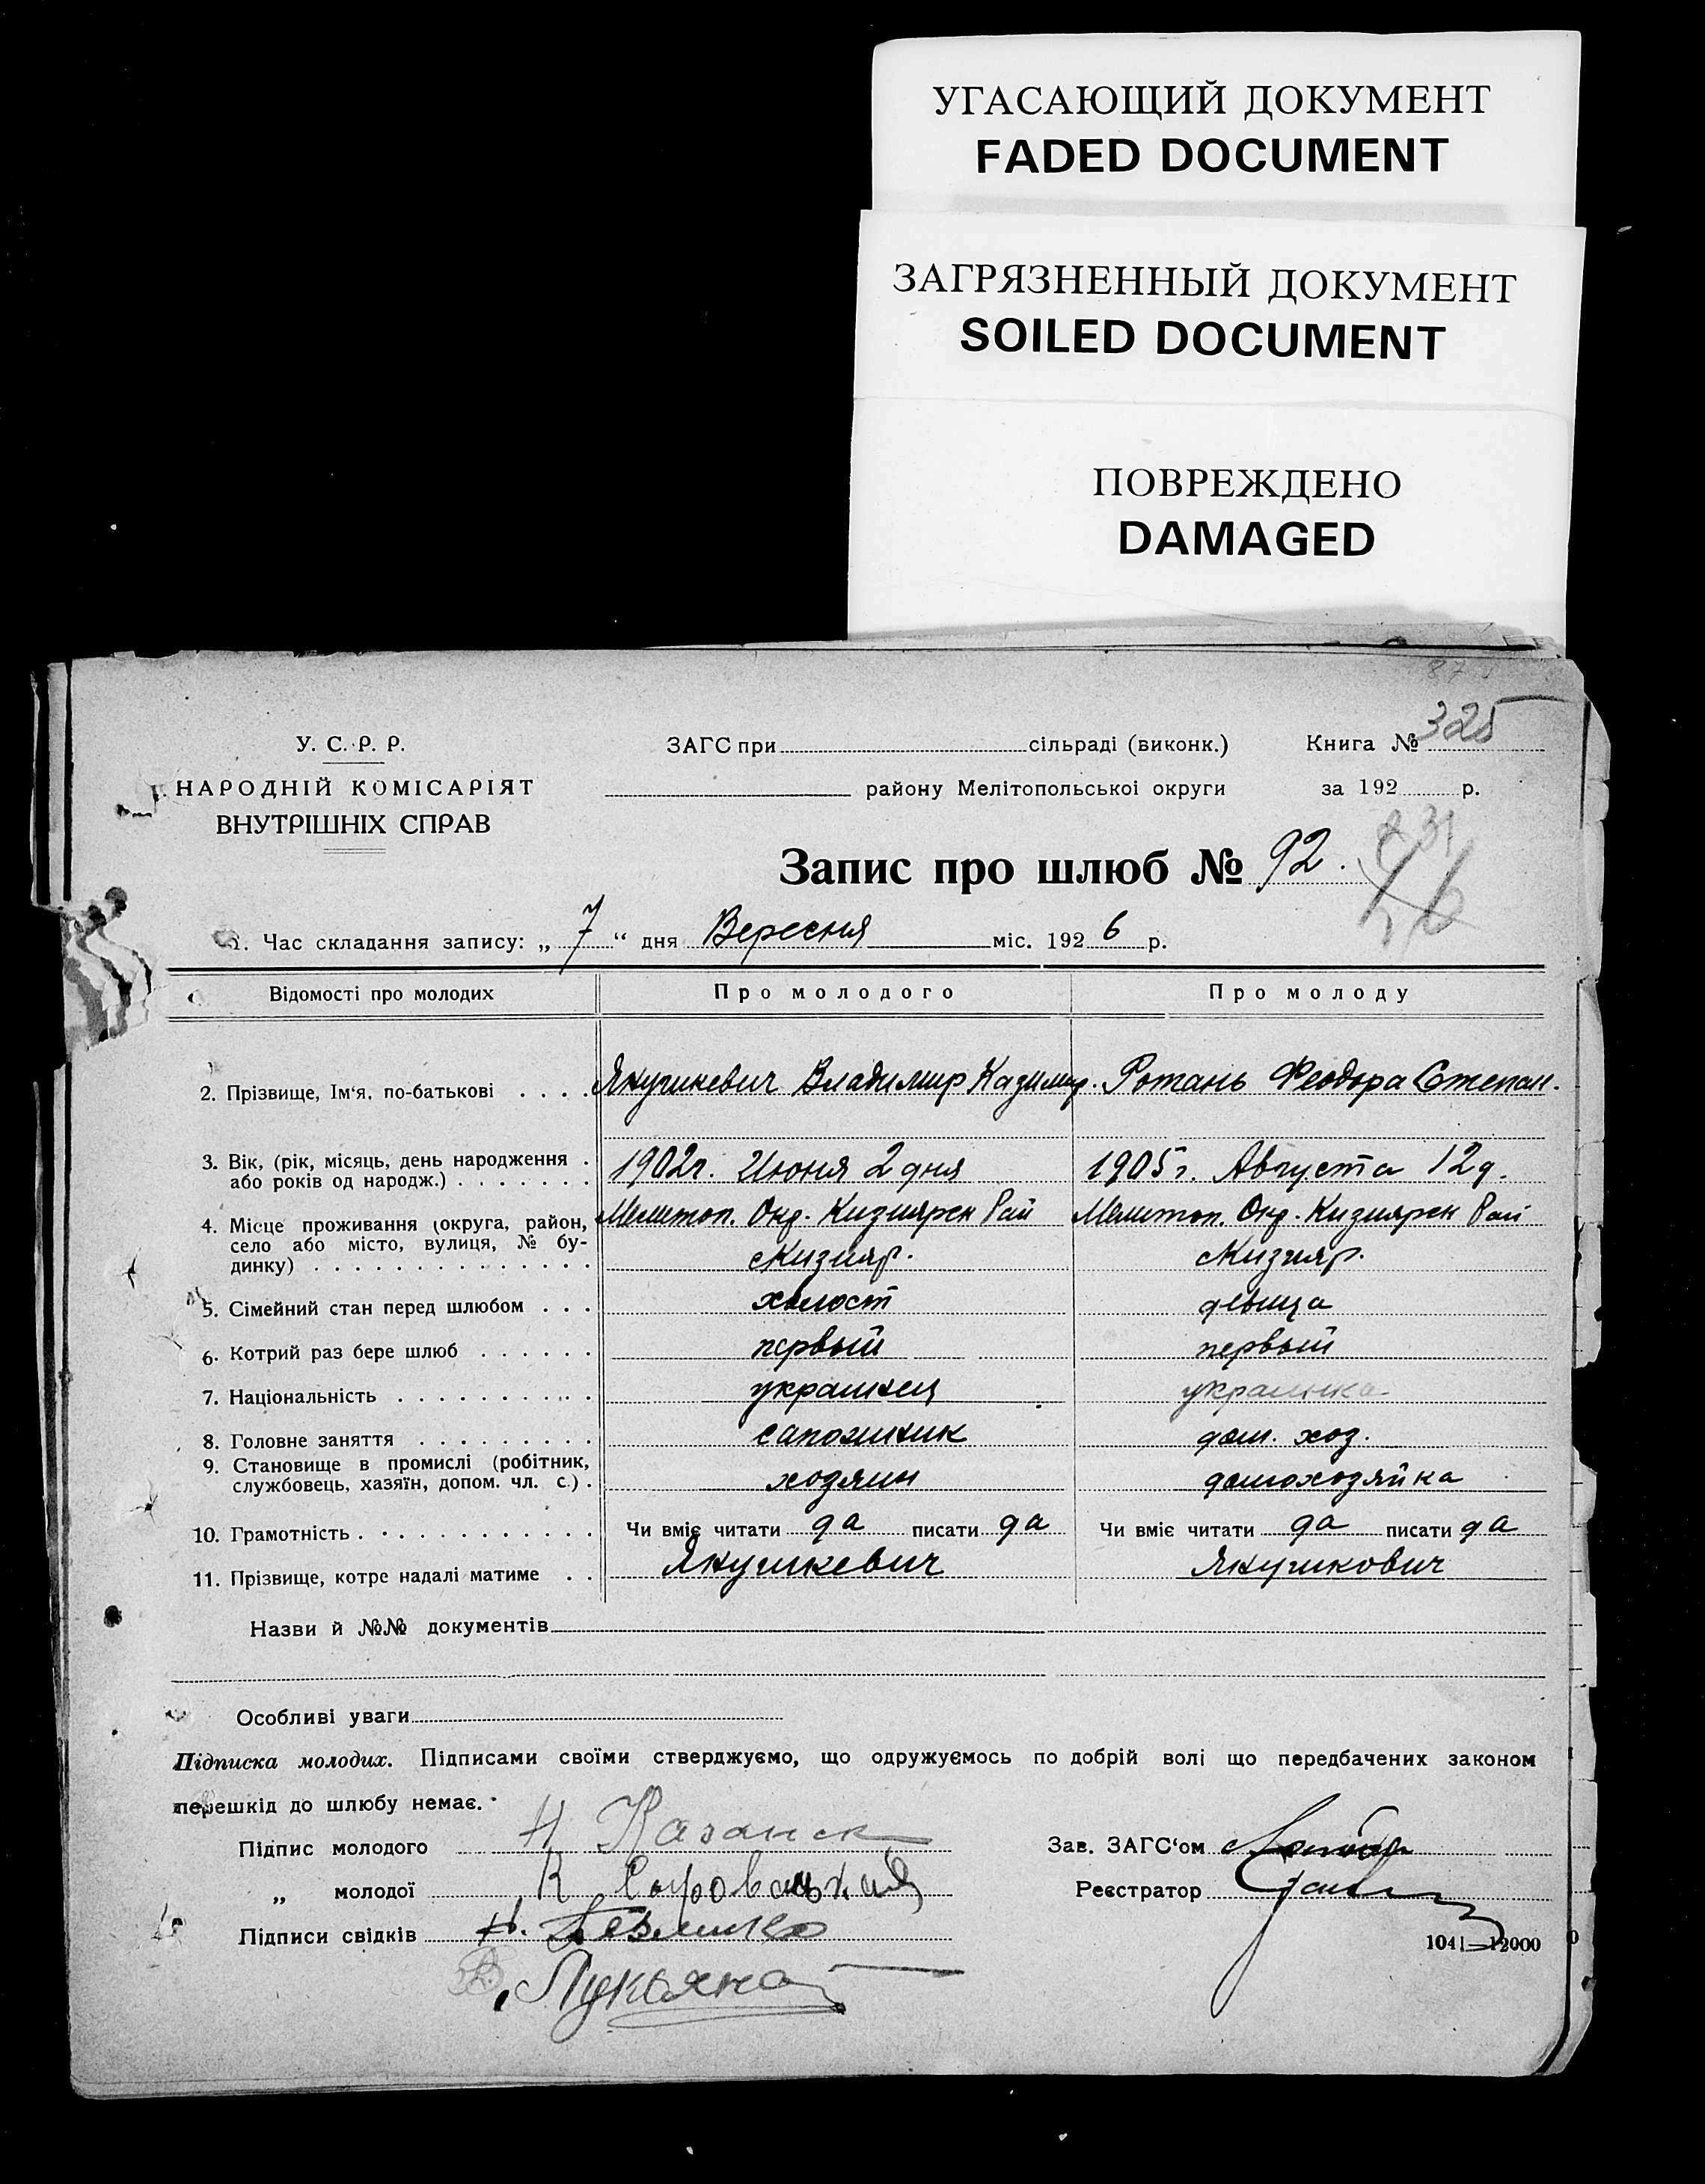 УГАСАЮЩИЙ ДОКУМЕНТ
FADED DOCUMENT
ЗАГРЯЗНЕННЫЙ ДОКУМЕНТ
SOILED DOCUMENT
ПОВРЕЖДЕНО
DAMAGED
У. С. Р. Р.
НАРОДНІЙ КОМІСАРІЯТ
ВНУТРІШНІХ СПРАВ
ЗАГС при сільраді (виконк.)
району Мелітопольської округи
Книга № 325
за 192 р.
Запис про шлюб № 92.
1. Час складання запису: „ 7 “ дня Вересня міс. 192 6 р.
Відомості про молодих Про молодого Про молоду
2. Прізвище, Ім‘я, по-батькові . . . . Янушкевич Владимир Казимир. Ротань Феодора Степан.
3. Вік, (рік, місяць, день народження . 1902г. Июня 2 дня 1905г. Августа 12 д.
або років од народж.) . . . . . . .
4. Місце проживання (округа, район, Мелитоп. Окр. Кизиярск Рай Мелитоп. Окр. Кизиярск Рай
село або місто, вулиця, № бу- Кизияр. Кизияр.
динку) . . . . . . . . . . . . . .
5. Сімейний стан перед шлюбом . . . холост девица
6. Котрий раз бере шлюб . . . . . . первый первый
7. Національність . . . . . . . . . . украинец украинка
8. Головне заняття . . . . . . . . . сапожник дом. хоз.
9. Становище в промислі (робітник,
службовець, хазяїн, допом. чл. с.) . хозяин домохозяйка
10. Грамотність . . . . . . . . . . . . Чи вміє читати да писати да Чи вміє читати да писати да
11. Прізвище, котре надалі матиме . . Янушкевич Янушкович
Назви й №№ документів
Особливі уваги
Підписка молодих. Підписами своїми стверджуємо, що одружуємось по добрій волі що передбачених законом
перешкід до шлюбу немає.
Підпис молодого Н Казанск Зав. ЗАГС‘ом
„ молодої К Реєстратор
Підписи свідків
1041—12000